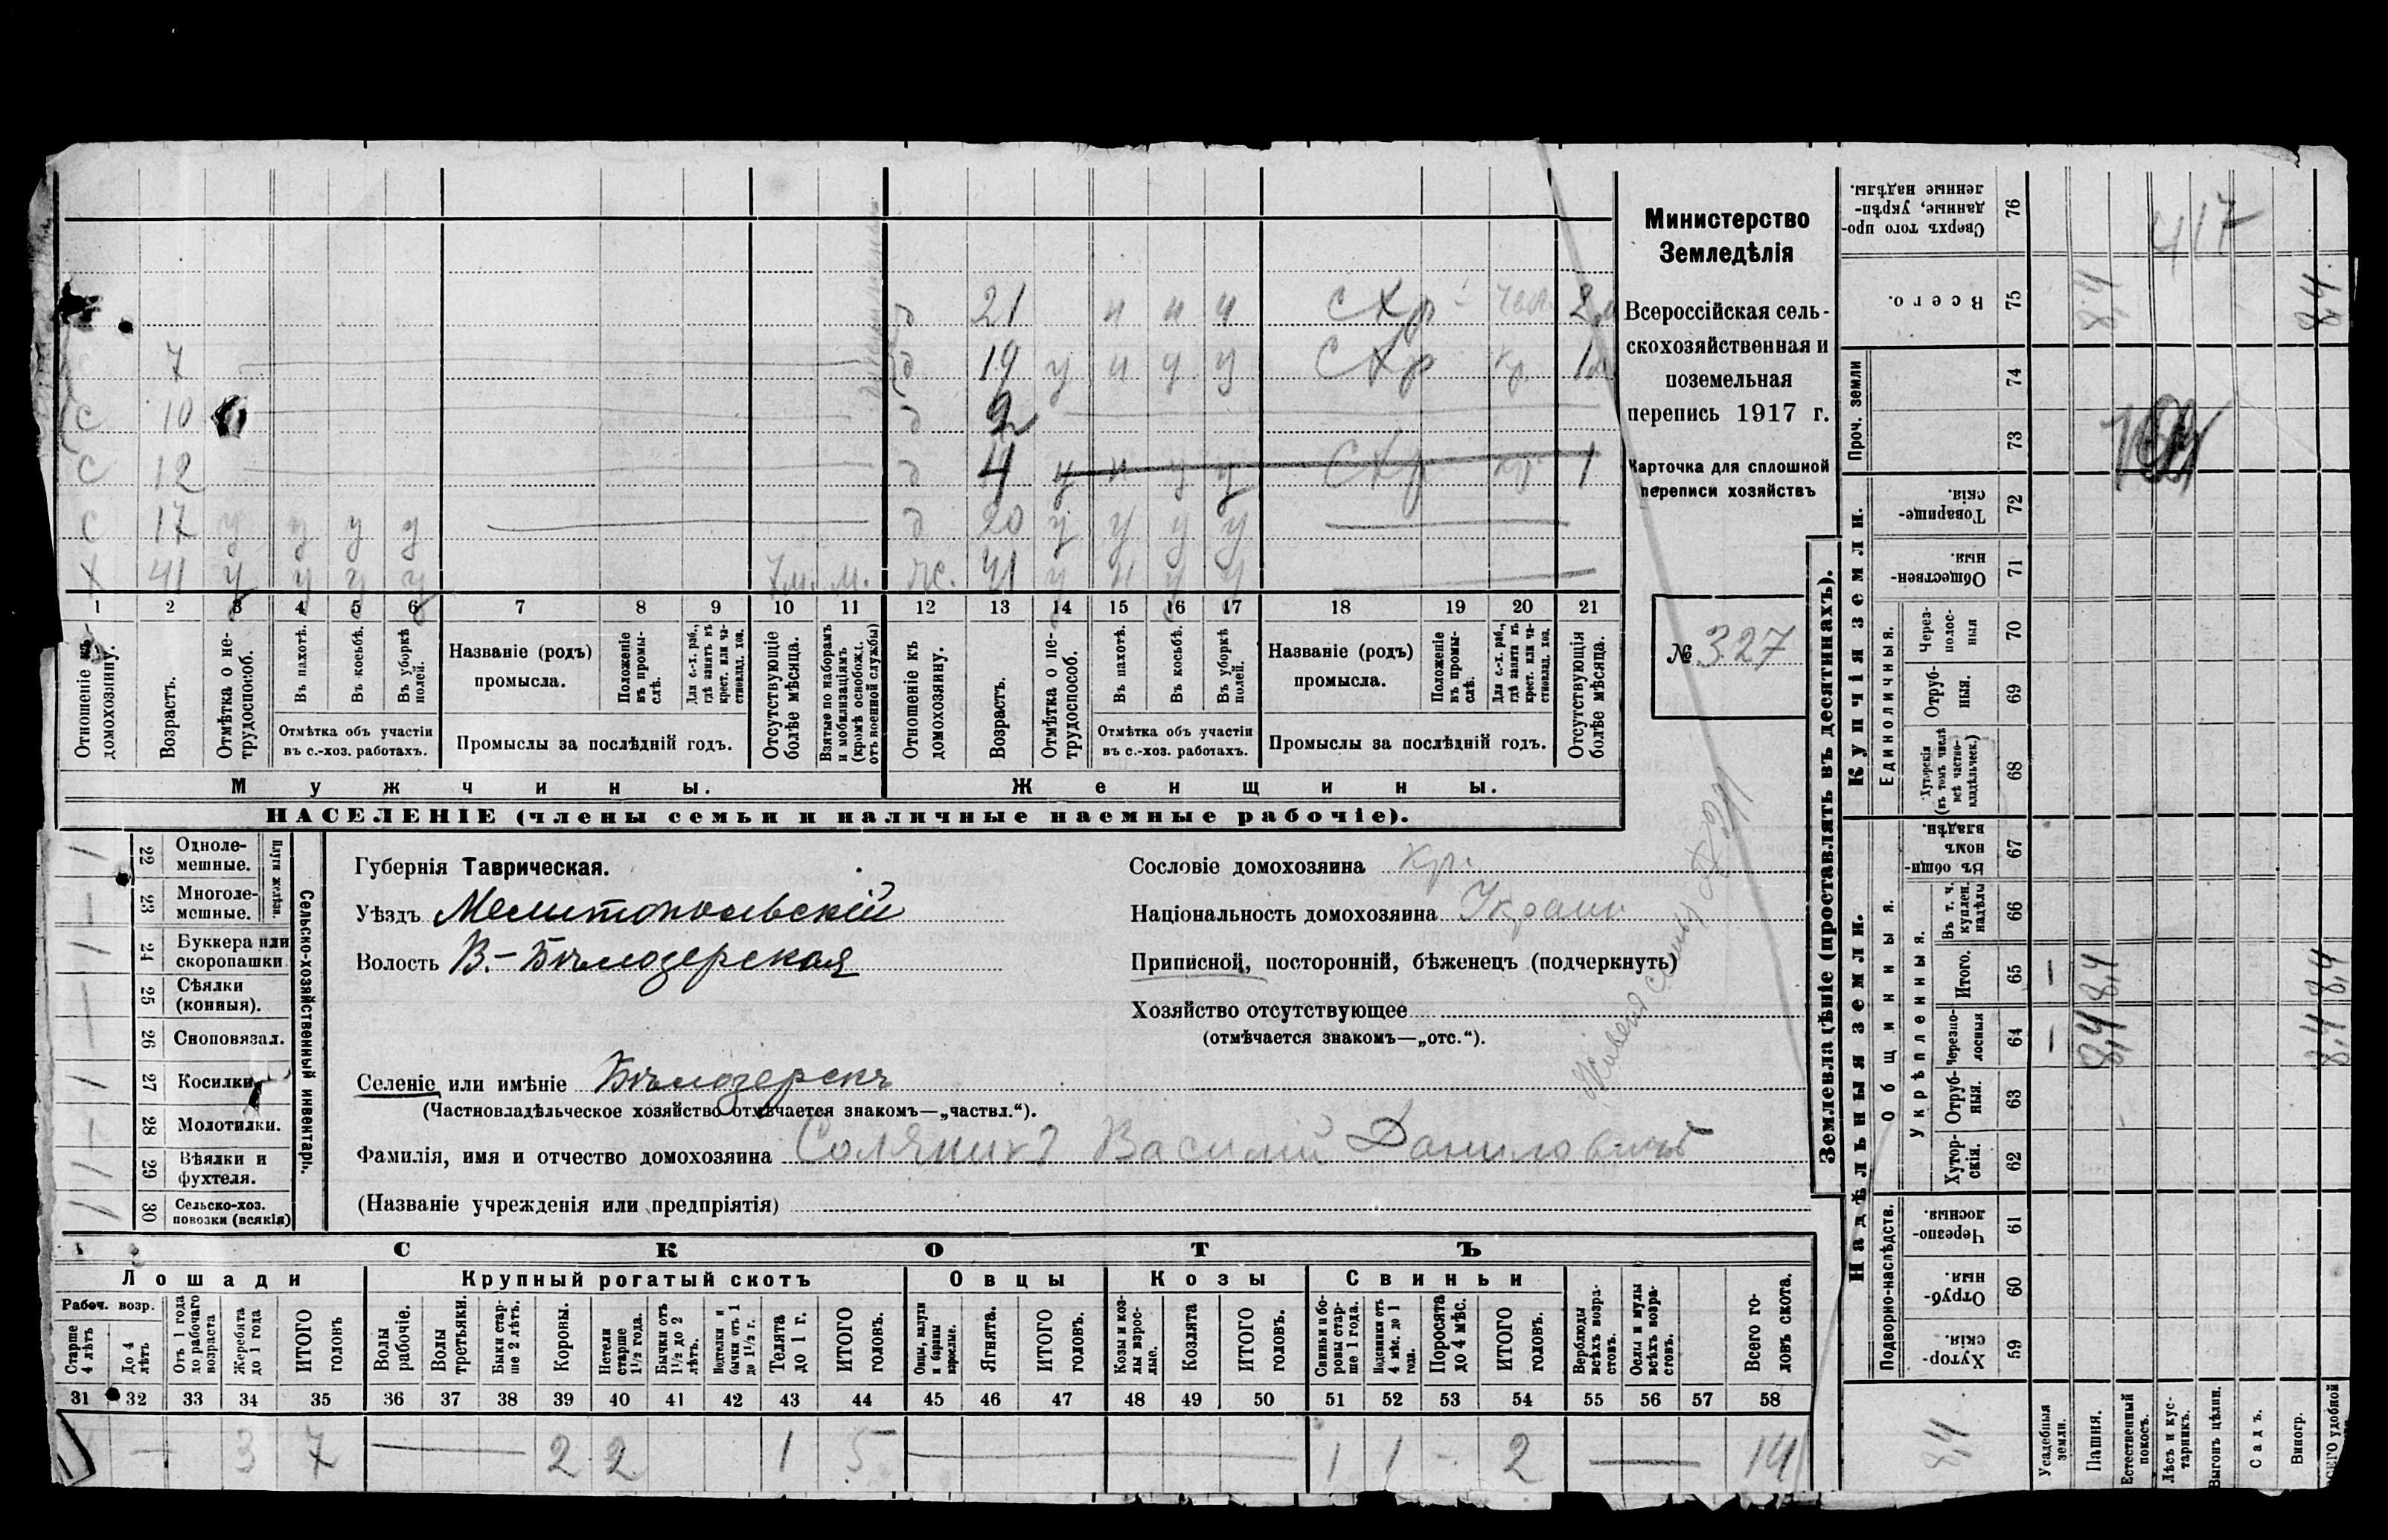 д 21 ч ч ч СХр 2м
С 7 д 19 у ч у у СХр кр. 1м
С 10 д 2
С 12 д 4 у ч у у СХр кр 1
С 17 у у у у д 20 у у у у
Х 41 у у у у 7м. м. ж. 41 у ч у у
1 2 3 4 5 6 7 8 9 10 11 12 13 14 15 16 17 18 19 20 21
Отношеніе къ домохозяину.
Возрастъ.
Отмѣтка о не-
трудоспособ.
Въ пахотѣ.
Въ косьбѣ.
Въ уборкѣ полей.
Отмѣтка объ участіи
въ с.-хоз. работахъ.
Названіе (родъ)
промысла.
Положеніе въ промы-
слѣ.
Для с.-х. раб., гдѣ занятъ въ крест. или ча-
стновлад. хоз.
Промыслы за послѣдній годъ.
Отсутствующіе болѣе мѣсяца.
Взятые по наборамъ
и мобилизаціямъ
(кромѣ освобожд.
отъ военной службы)
Отношеніе къ
домохозяину.
Возрастъ.
Отмѣтка о не-
трудоспособ.
Въ пахотѣ.
Въ косьбѣ.
Въ уборкѣ
полей.
Отмѣтка объ участіи
въ с.-хоз. работахъ.
Названіе (родъ)
промысла.
Положеніе
въ промы-
слѣ.
Для с.-х. раб.,
гдѣ занята въ
крест. или ча-
стновлад. хоз.
Промыслы за послѣдній годъ.
Отсутствующія
болѣе мѣсяца.
Мужчины.
Женщины.
НАСЕЛЕНІЕ (члены семьи и наличные наемные рабочіе).
Министерство
Земледѣлія
Всероссійская сель-
скохозяйственная и
поземельная
перепись 1917 г.
Карточка для сплошной
переписи хозяйствъ
№ 327
22 Одноле-
мешные.
23 Многоле-
мешные.
Плуги желѣзн.
24 Буккера или
скоропашки
25 Сѣялки
(конныя).
26 Сноповязал.
27 Косилки
28 Молотилки.
29 Вѣялки и
фухтеля.
30 Сельско-хоз.
повозки (всякія)
Сельско-хозяйственный инвентарь.
Губернія Таврическая.
Уѣздъ Мелитопольскій
Волость В.-Бѣлозерская
Селеніе или имѣніе Бѣлозерскъ
(Частновладѣльческое хозяйство отмѣчается знакомъ—„частвл.“).
Фамилія, имя и отчество домохозяина Соляникъ Василій Даниловичъ
(Названіе учрежденія или предпріятія)
Сословіе домохозяина кр.
Національность домохозяина Украин
Приписной, посторонній, бѣженецъ (подчеркнуть)
Хозяйство отсутствующее
(отмѣчается знакомъ—„отс.“).
СКОТЪ
Лошади Крупный рогатый скотъ Овцы Козы Свиньи
Рабоч. возр.
Старше
4 лѣтъ
До 4
лѣтъ
Отъ 1 года
до рабочаго
возраста
Жеребята
до 1 года
ИТОГО
головъ
Волы
рабочіе.
Волы
третьяки.
Быки стар-
ше 2 лѣтъ.
Коровы.
Нетели
старше
1½ года.
Бычки отъ
1½ до 2
лѣтъ.
Подтелки и
бычки отъ 1
до 1½ г.
Телята
до 1 г.
ИТОГО
головъ.
Овцы, валухи
и бараны
взрослые.
Ягнята.
ИТОГО
головъ.
Козы и коз-
лы взрос-
лые.
Козлята
ИТОГО
головъ.
Свиньи и бо-
ровы стар-
ше 1 года.
Подсвинки отъ
4 мѣс. до 1
года.
Поросята
до 4 мѣс.
ИТОГО
головъ.
Верблюды
всѣхъ возра-
стовъ.
Ослы и мулы
всѣхъ возра-
стовъ.
Всего го-
ловъ скота.
31 32 33 34 35 36 37 38 39 40 41 42 43 44 45 46 47 48 49 50 51 52 53 54 55 56 57 58
— 3 7 — 2 2 1 5 — 1 1 - 2 — 14
Землевладѣніе (проставлять въ десятинахъ).
Надѣльныя земли.
Купчія земли.
Проч. земли
Подворно-наслѣдств.
Общинныя.
Укрѣпленныя.
Единоличныя.
Сверхъ того про-
данные, укрѣп-
ленные надѣлы.
76
Всего.
75
74
73
Товарище-
скія.
72
Обществен-
ныя.
71
Через-
полос-
ныя
70
Отруб-
ныя.
69
Хуторскія
(въ томъ числѣ
всѣ частно-
владѣльческ.)
68
Въ общин-
номъ
владѣн.
67
Въ т. ч.
куплен.
надѣлы
66
Итого.
65
Черезпо-
лосныя
64
Отруб-
ныя.
63
Хутор-
скія.
62
Черезпо-
лосныя.
61
Отруб-
ныя.
60
Хутор-
скія.
59
Усадебныя
земли.
Пашня.
Естественный
покосъ.
Лѣсъ и кус-
тарникъ.
Выгонъ цѣлин.
Садъ.
Виногр.
417
8,4
8,4
8,4 8,4
8,4 8,4
8,4